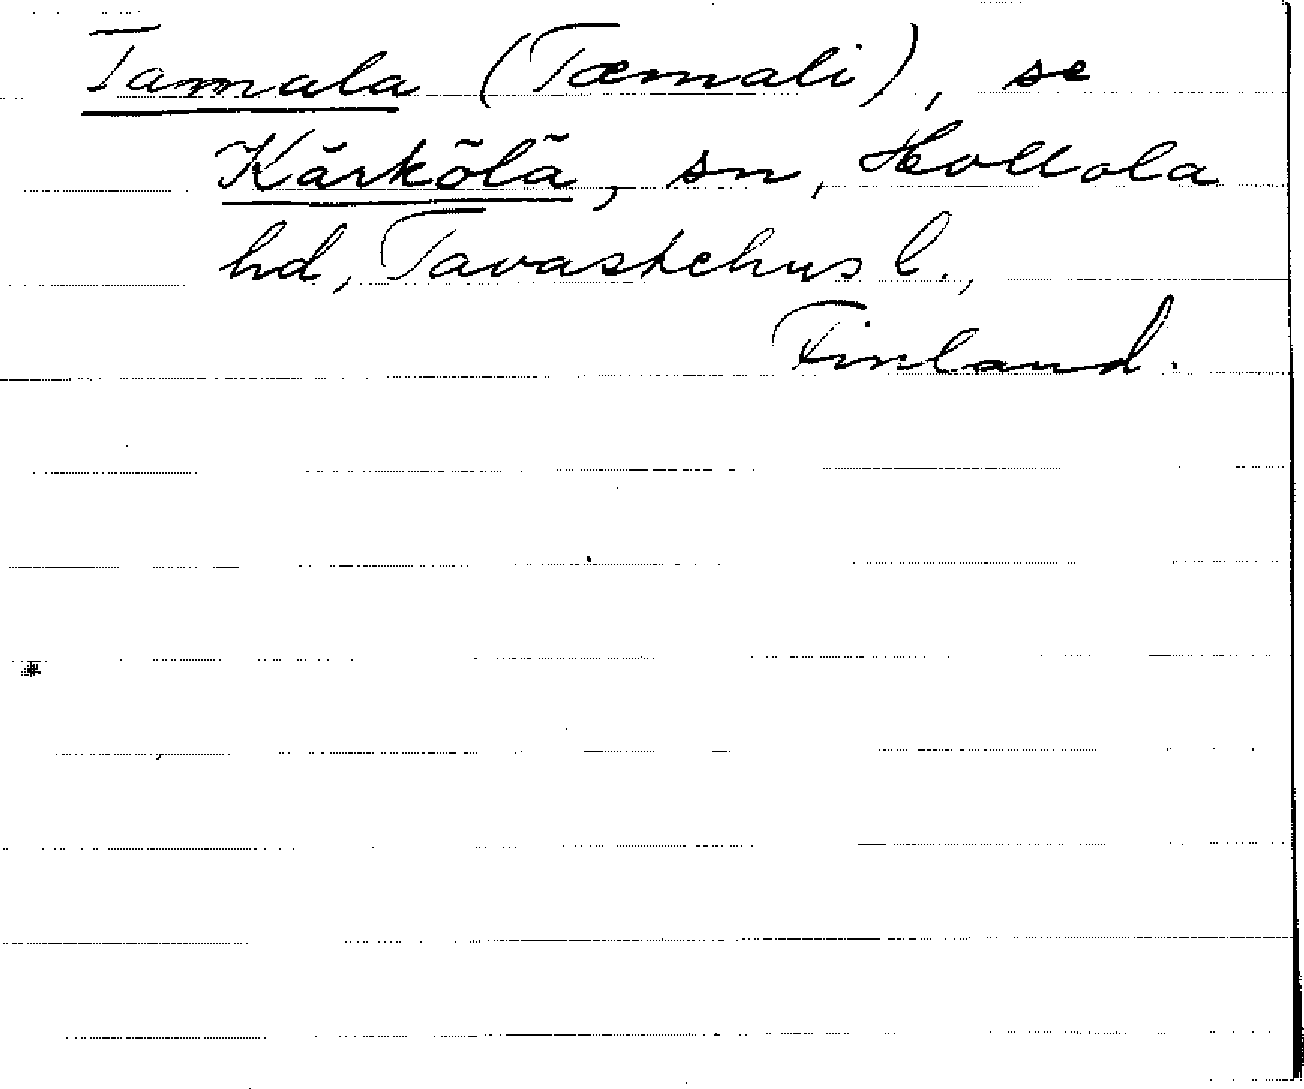 Tammala (Tæmali), se
Kärkölä, sn, Hollola
hd, Tavastehus l.,
Finland.